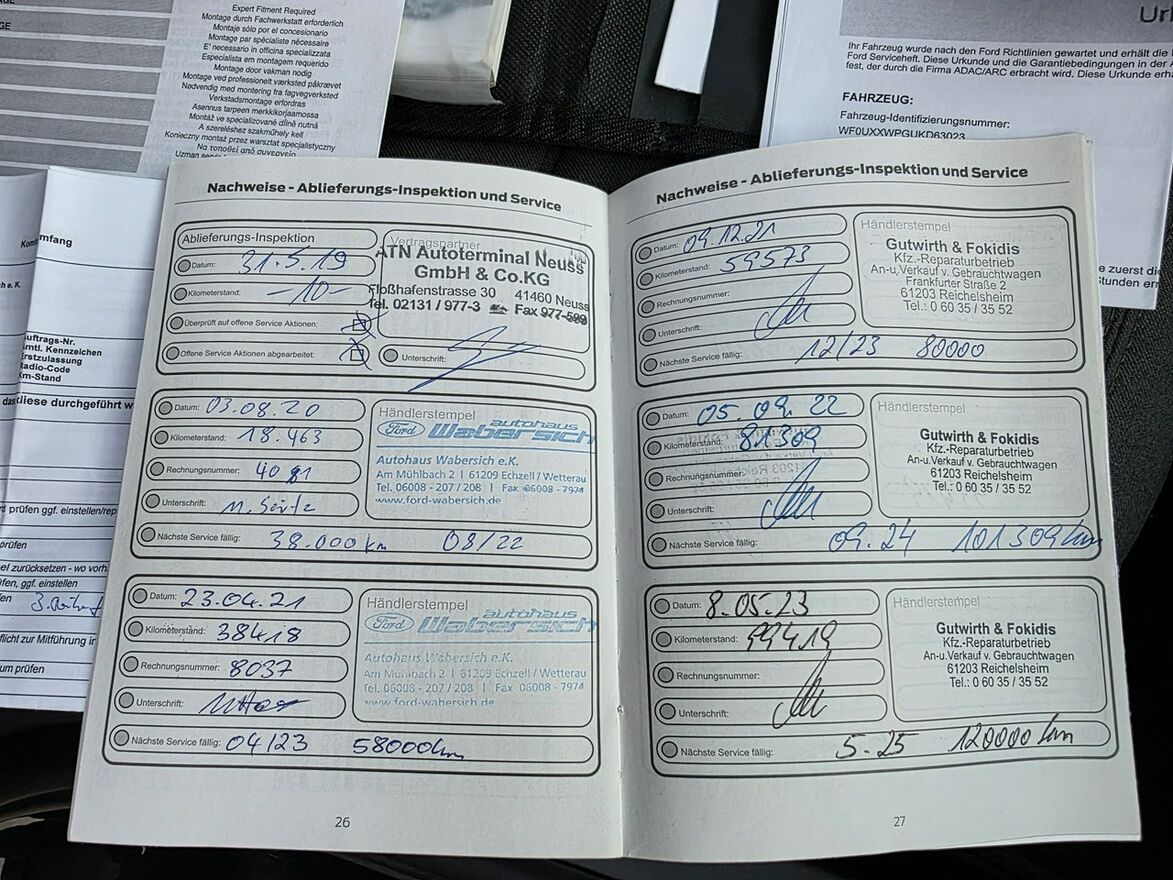 Expert Fitment Required
Montage durch Fachwerkstatt erforderlich
Montaje sólo por el concesionario
Montage par spécialiste nécessaire
E' necessario in officina specializzata
Especialista em montagem requerido
Montage door vakman nodig
Montage ved professionelt værksted påkrævet
Nødvendig med montering fra fagvegverksted
Verkstadsmontage erfordras
Asennus tarpeen merkkikorjaamossa
Montáž ve specializované dílně nutná
A szereléshez szakműhely kell
Konieczny montaż przez warsztat specjalistyczny
Να τοποθετεί από συνεργείο
Uzman
Ihr Fahrzeug wurde nach den Ford Richtlinien gewartet und erhält die
Ford Serviceheft. Diese Urkunde und die Garantiebedingungen in der
fest, der durch die Firma ADAC/ARC erbracht wird. Diese Urkunde
FAHRZEUG:
Fahrzeug-Identifizierungsnummer:
WF0UXXWPGUKD63023
zuerst di
Stunden
umfang
uftrags-Nr.
mtl. Kennzeichen
rstzulassung
adio-Code
m-Stand
diese durchgeführt w
prüfen ggf. einstellen/rep
prüfen
zurücksetzen - wo vorh.
fen, ggf. einstellen
flicht zur Mitführung in
um prüfen
Nachweise - Ablieferungs-Inspektion und Service
Ablieferungs-Inspektion
Datum: 31.5.19
Kilometerstand: -10-
Überprüft auf offene Service Aktionen:
Offene Service Aktionen abgearbeitet:
Vertragspartner
ATN Autoterminal Neuss
GmbH & Co.KG
Floßhafenstrasse 30 41460 Neuss
Tel. 02131 / 977-3 Fax 977-599
Unterschrift:
Datum: 03.08.20
Kilometerstand: 18.463
Rechnungsnummer: 4081
Unterschrift:
Nächste Service fällig: 38.000 km 08/22
Händlerstempel
Ford autohaus
Wabersich
Autohaus Wabersich e.K.
Am Mühlbach 2 | 61209 Echzell / Wetterau
Tel. 06008 - 207 / 208 | Fax 06008 - 7974
www.ford-wabersich.de
Datum: 23.04.21
Kilometerstand: 38418
Rechnungsnummer: 8037
Unterschrift:
Nächste Service fällig: 04/23 58000km
Händlerstempel
Ford autohaus
Wabersich
Autohaus Wabersich e.K.
Am Mühlbach 2 | 61209 Echzell / Wetterau
Tel. 06008 - 207 / 208 | Fax 06008 - 7974
www.ford-wabersich.de
26
Nachweise - Ablieferungs-Inspektion und Service
Datum: 09.12.21
Kilometerstand: 59573
Rechnungsnummer:
Unterschrift:
Nächste Service fällig: 12/23 80000
Händlerstempel
Gutwirth & Fokidis
Kfz.-Reparaturbetrieb
An-u.Verkauf v. Gebrauchtwagen
Frankfurter Straße 2
61203 Reichelsheim
Tel.: 0 60 35 / 35 52
Datum: 05.09.22
Kilometerstand: 81309
Rechnungsnummer:
Unterschrift:
Nächste Service fällig: 09.24 101309km
Händlerstempel
Gutwirth & Fokidis
Kfz.-Reparaturbetrieb
An-u.Verkauf v. Gebrauchtwagen
61203 Reichelsheim
Tel.: 0 60 35 / 35 52
Datum: 8.05.23
Kilometerstand: 99419
Rechnungsnummer:
Unterschrift:
Nächste Service fällig: 5.25 120000 km
Händlerstempel
Gutwirth & Fokidis
Kfz.-Reparaturbetrieb
An-u.Verkauf v. Gebrauchtwagen
61203 Reichelsheim
Tel.: 0 60 35 / 35 52
27